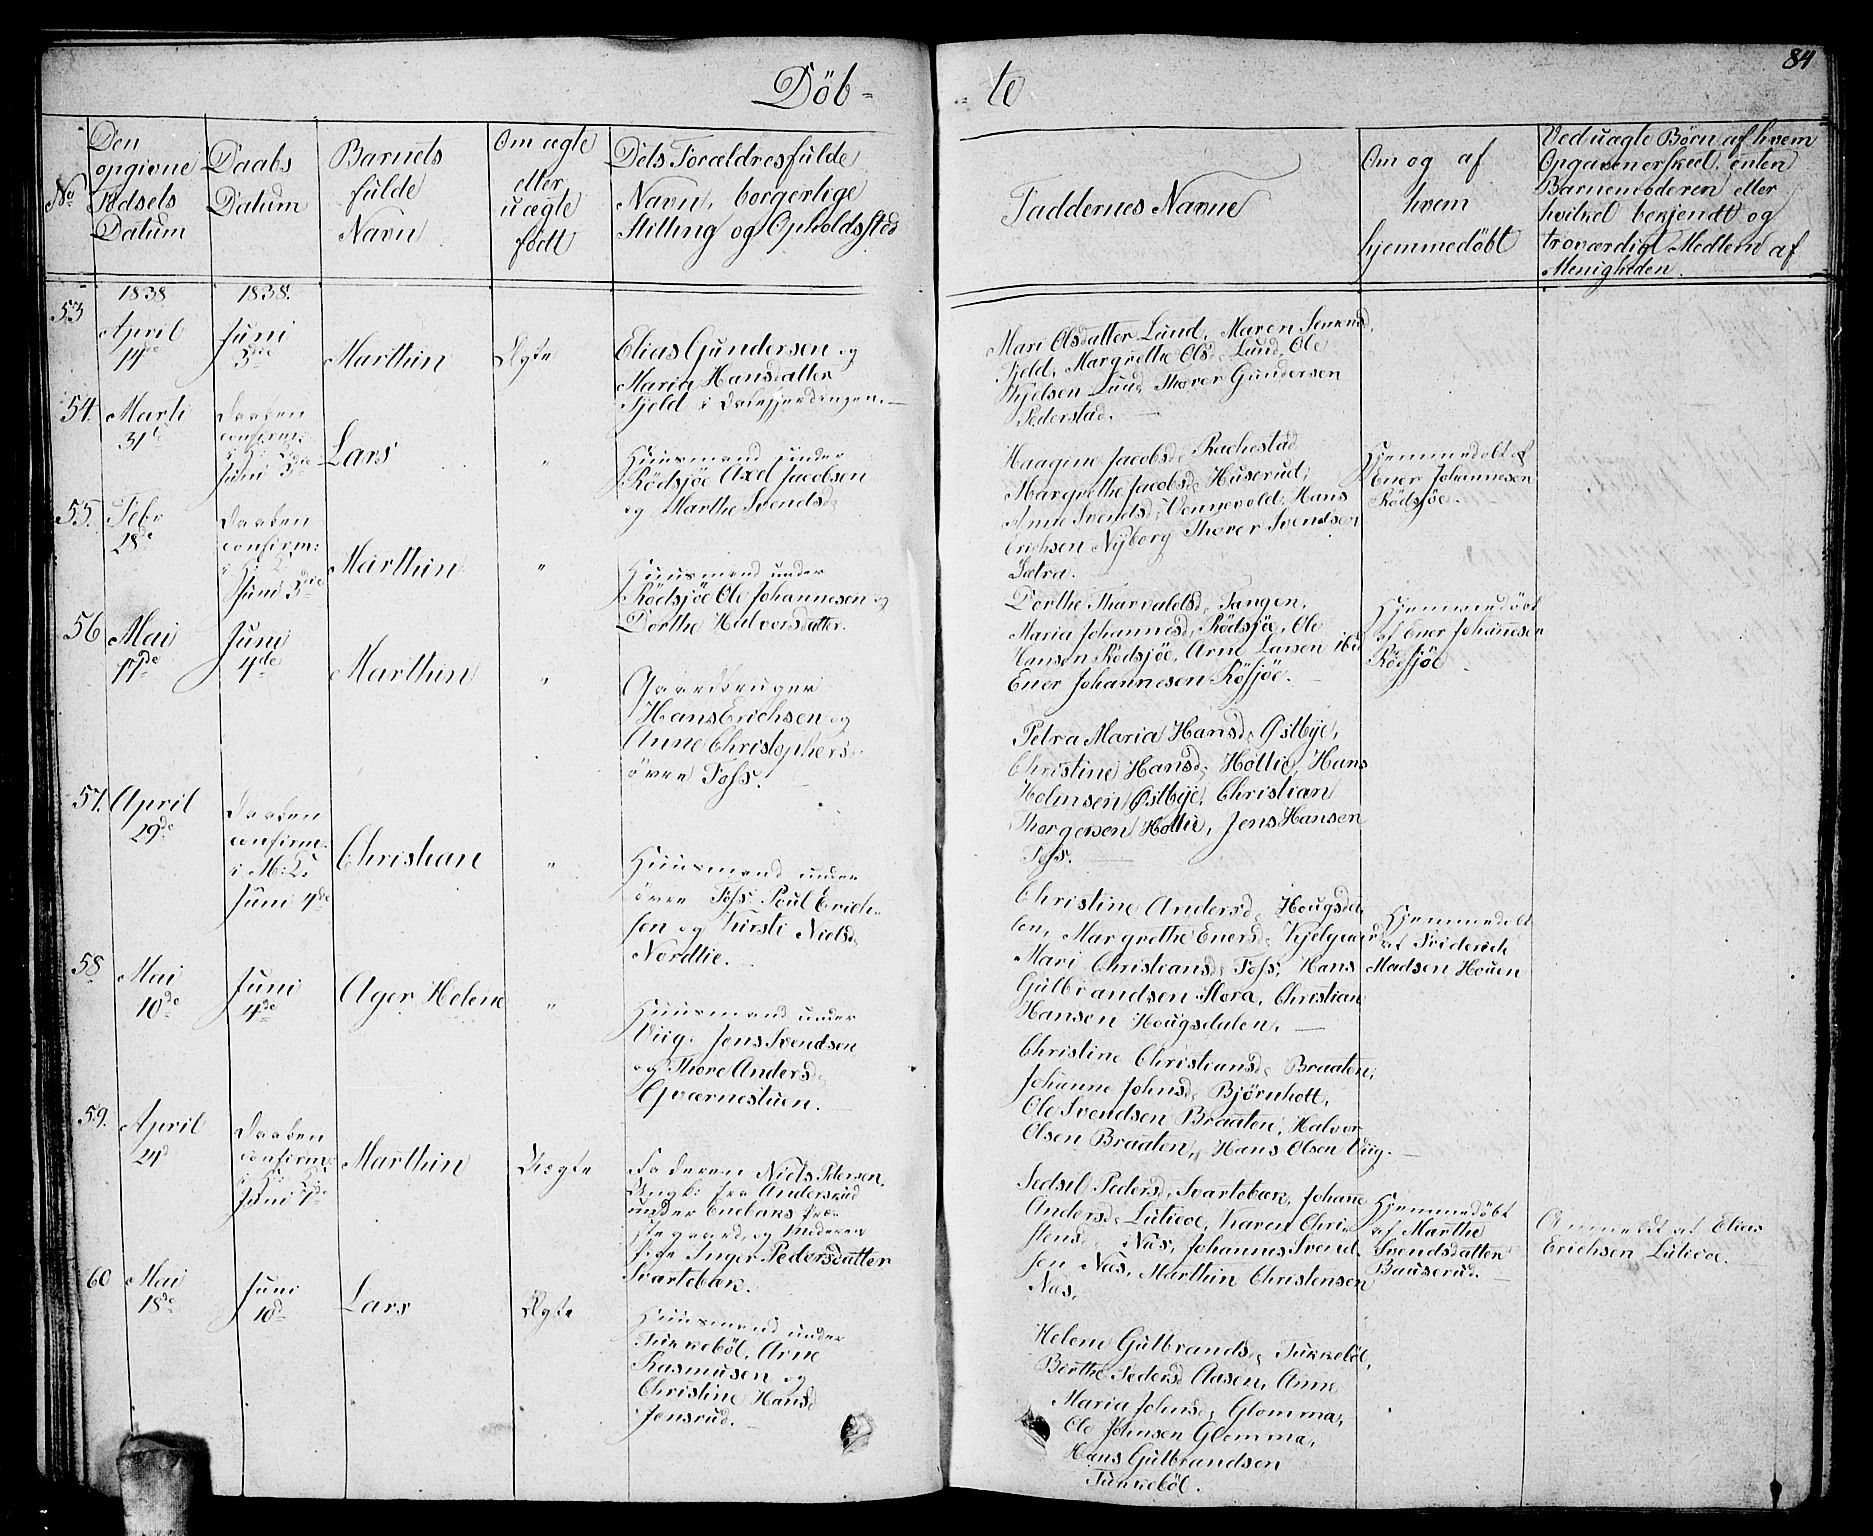 Döb-
te
84
No
Den
opgivne
Fødsels
Datum
Daabs
Datum
Barnets
fulde
Navn
Om ægte
eller
uægte
født
Dets Forældres fulde
Navn, borgerlige
Stilling og Opholdssted
Faddernes Navne
Om og af
hvem
hjemmedöbt
Ved uagte Börn af hvem
Opgaven er skeet, enten
Barnemoderen eller
hvilket bekjendt og
troværdigt Medlem af
Menigheden.
1838
1838.
53
April
14de
Juni
3die
Marthin
Ægte
Elias Gundersen og
Maria Hansdatter
Fjeld i Dalefjerdingen.
Mari Olsdatter Lund, Maren Simensd.
Fjeld, Margrethe Olsd. Lund, Ole
Kjelsen Lund, Thorer Gundersen
Pederstad.
54.
Marti
31te
Daaben
confirm:
Juni 3die
Lars
"
Huusmand under
Rödsjöe Axel Jacobsen
og Marthe Svendsd.
Haagine Jacobsd. Rachestad
Margrethe Jacobsd. Huserud,
Anne Svendsd. Vennevold, Hans
Erichsen Nyborg Thorer Svendsen
Sætra.
Hjemmedöbt af
Ener Johannesen
Rödsjöe.
55.
Febr
28de
Daaben
confirm:
Juni 3die
Marthin
"
Huusmand under
Rödsjöe Ole Johannesen og
Dorthe Halvorsdatter.
Dorthe Tharvaldsd. Tangen,
Maria Johannesd. Rödsjöe, Ole
Hansen Rödsjöe, Arne Larsen ibid
Ener Johannesen Rösjöe.
Hjemmedöbt
af Ener Johannesen
Rösjöe
56
Mai
17de
Juni
4de
Marthin
"
Gaardbruger
Hans Erichsen og
Anne Christophersd.
övre Foss.
Petra Maria Hansd. Østbye,
Christine Hansd. Hollie, Hans
Holmsen Østbye, Christian
Thorgersen Hollie, Jens Hansen
Foss.
57.
April
29de
Daaben
confirm:
i M: K.
Juni 4de
Christian
"
Huusmand under
övre Foss Poul Erich-
sen og Kirsti Nielsd.
Nordlie.
Christine Andersd. Hougsda-
len, Margrethe Enersd. Kjelgaard
Mari Christiansd. Foss, Hans
Gulbrandsen Flora, Christian
Hansen Hougsdalen.
Hjemmedöbt
af Friderich
Madsen Houen
58
Mai
10de
Juni
4de
Ager Helene
"
Huusmand under
Viig. Jens Svendsen
og Thore Andersd.
Qværnestuen.
Christine Christiansd. Braaten,
Johanne Johnsd. Björnholt,
Ole Svendsen Braaten, Halvor
Olsen Braaten, Hans Olsen Viig.
59.
April
24d
Daaben
confirm:
Juni
Marthin
Uægte
Faderen Niels Petersen,
Ungk: fra Anderstud
under Enebaks Præ-
stegaard, og Moderen
Pige Inger Pedersdatter
Svartebæk.
Sedsel Pedersd. Svartebæk, Johane
Andersd. Lutieoe, Karen Chri-
stensd. Næs, Johannes Svend
sen Næs, Marthin Christensen
Næs.
Hjemmedöbt
af Marthe
Svendsdatter
Bauserud.
Anmeldt af Elias
Erichsen Lutieoe.
60
Mai
18de
Juni
10d
Lars
Ægte
Huusmand under
Tukkeböl, Arne
Rasmusen og
Christine Hansd
Jensrud.
Helene Gulbrandsd. Tukkeböl,
Birthe Pedersd Aasen, Anne
Maria Johnsd. Glomma,
Ole Johnsen Glomma,
Hans Gulbrandsen
Tukkeböl.